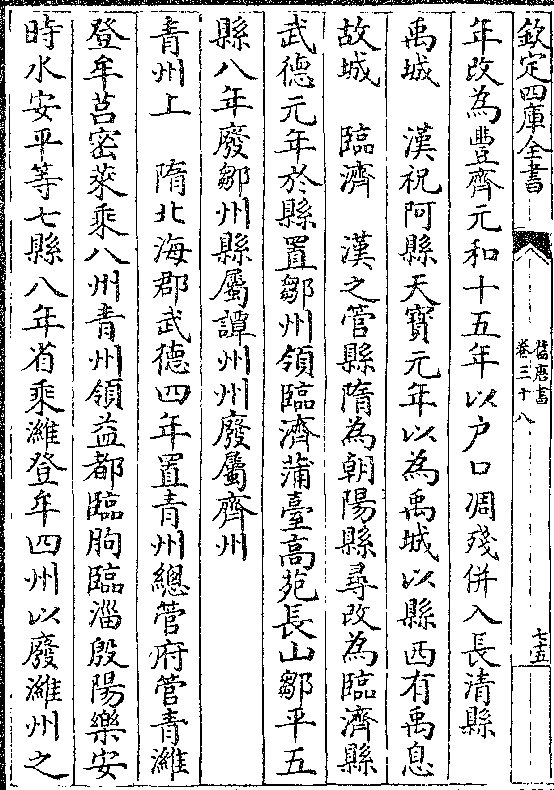 欽定四庫全書
舊唐書
卷三十八
七五
年改為豐齊元和十五年以户口凋殘併入長清縣
禹城 漢祝阿縣天寶元年以為禹城以縣西有禹息
故城 臨濟 漢之菅縣隋為朝陽縣尋改為臨濟縣
武德元年於縣置鄒州領臨濟蒲臺高苑長山鄒平五
縣八年廢鄒州縣屬譚州州廢屬齊州
青州上 隋北海郡武德四年置青州總管府管青濰
登牟莒密萊乘八州青州領益都臨朐臨淄殷陽樂安
時水安平等七縣八年省乘濰登牟四州以廢濰州之